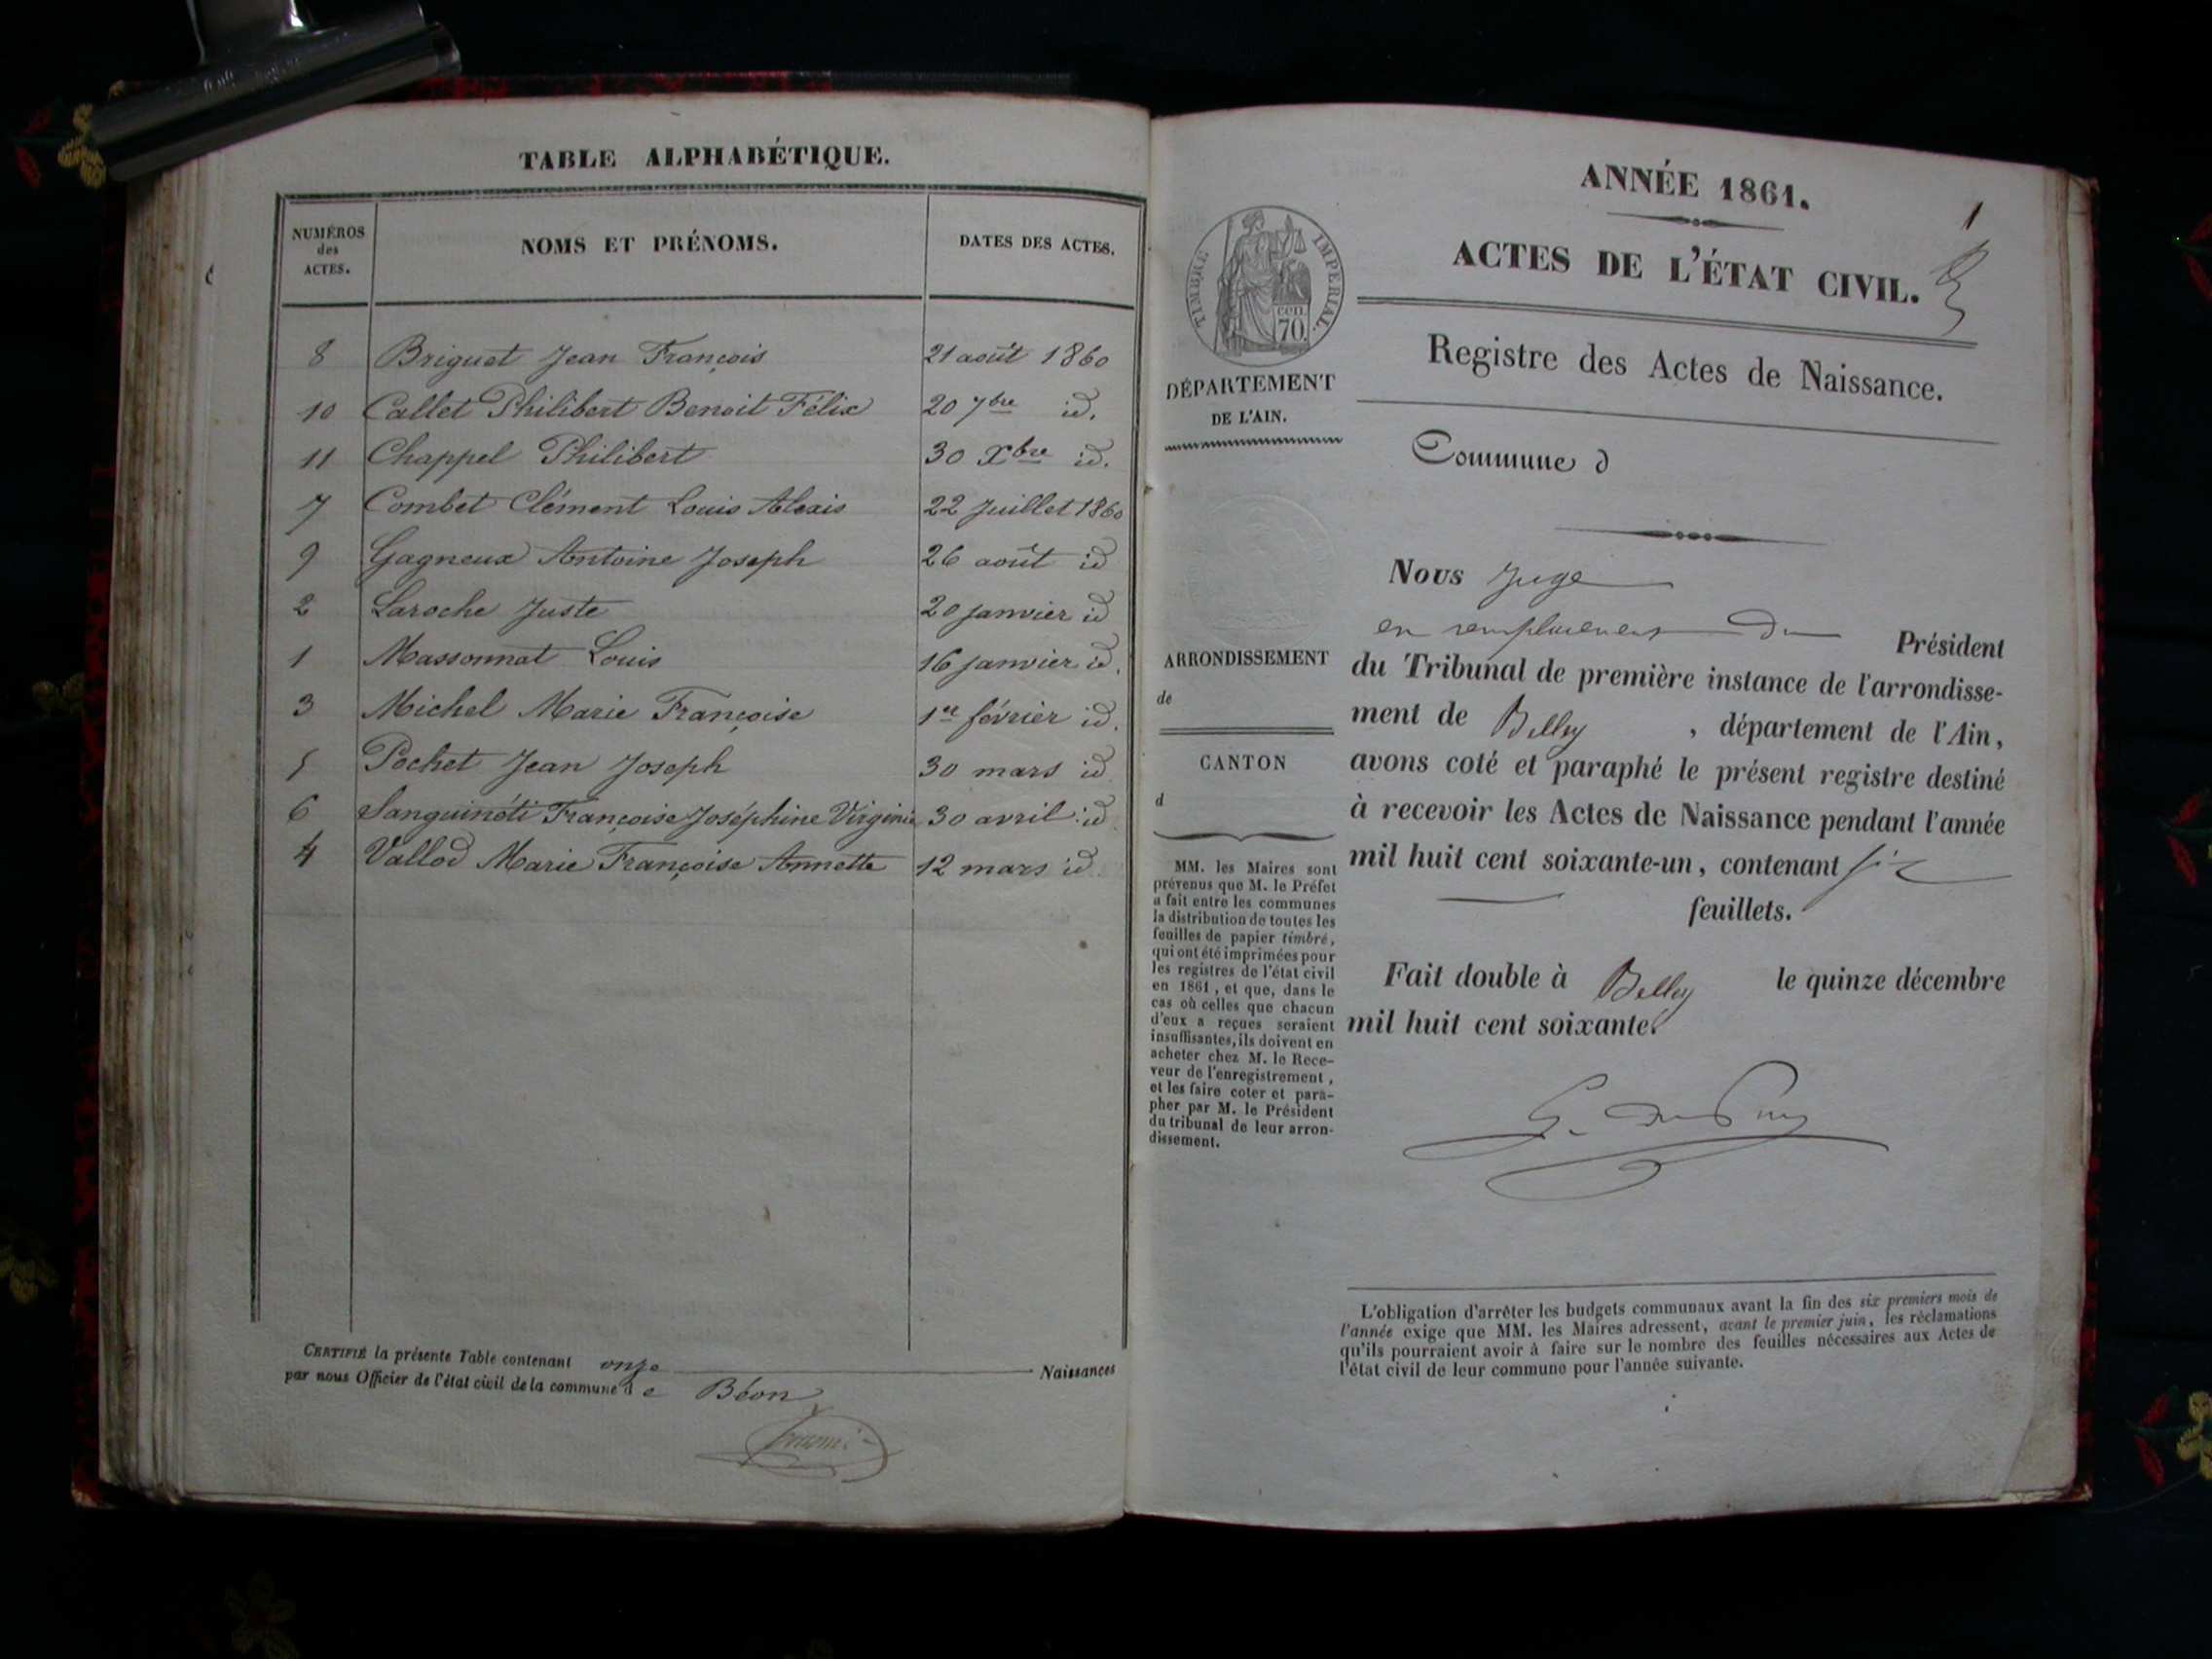 TABLE ALPHABÉTIQUE.
NUMÉROS des ACTES.
NOMS ET PRÉNOMS.
DATES DES ACTES.
8 Briguet Jean François 21 août 1860
10 Callet Philibert Benoit Félix 20 7bre id.
11 Chappel Philibert 30 Xbre id.
7 Combet Clément Louis Alexis 22 Juillet 1860
9 Gagneux Antoine Joseph 26 août id
2 Laroche Juste 20 janvier id
1 Massonnat Louis 16 janvier id.
3 Michel Marie Françoise 1er février id.
5 Pochet Jean Joseph 30 mars id
6 Sanguinéti Françoise Joséphine Virginie 30 avril id
4 Vallod Marie Françoise Annette 12 mars id.
CERTIFIÉ la présente Table contenant onze Naissances
par nous Officier de l'état civil de la commune de Béon
ANNÉE 1861.
1
ACTES DE L'ÉTAT CIVIL.
Registre des Actes de Naissance.
TIMBRE IMPERIAL.
cen. 70.
DÉPARTEMENT
DE L'AIN.
Commune d
Nous Juge
en remplacement du Président
du Tribunal de première instance de l'arrondisse-
ment de Belley, département de l'Ain,
avons coté et paraphé le présent registre destiné
à recevoir les Actes de Naissance pendant l'année
mil huit cent soixante-un, contenant six
feuillets.
Fait double à Belley le quinze décembre
mil huit cent soixante.
ARRONDISSEMENT
de
CANTON
d
MM. les Maires sont
prévenus que M. le Préfet
a fait entre les communes
la distribution de toutes les
feuilles de papier timbré,
qui ont été imprimées pour
les registres de l'état civil
en 1861, et que, dans le
cas où celles que chacun
d'eux a reçues seraient
insuffisantes, ils doivent en
acheter chez M. le Rece-
veur de l'enregistrement,
et les faire coter et para-
pher par M. le Président
du tribunal de leur arron-
dissement.
L'obligation d'arrêter les budgets communaux avant la fin des six premiers mois de
l'année exige que MM. les Maires adressent, avant le premier juin, les réclamations
qu'ils pourraient avoir à faire sur le nombre des feuilles nécessaires aux Actes de
l'état civil de leur commune pour l'année suivante.